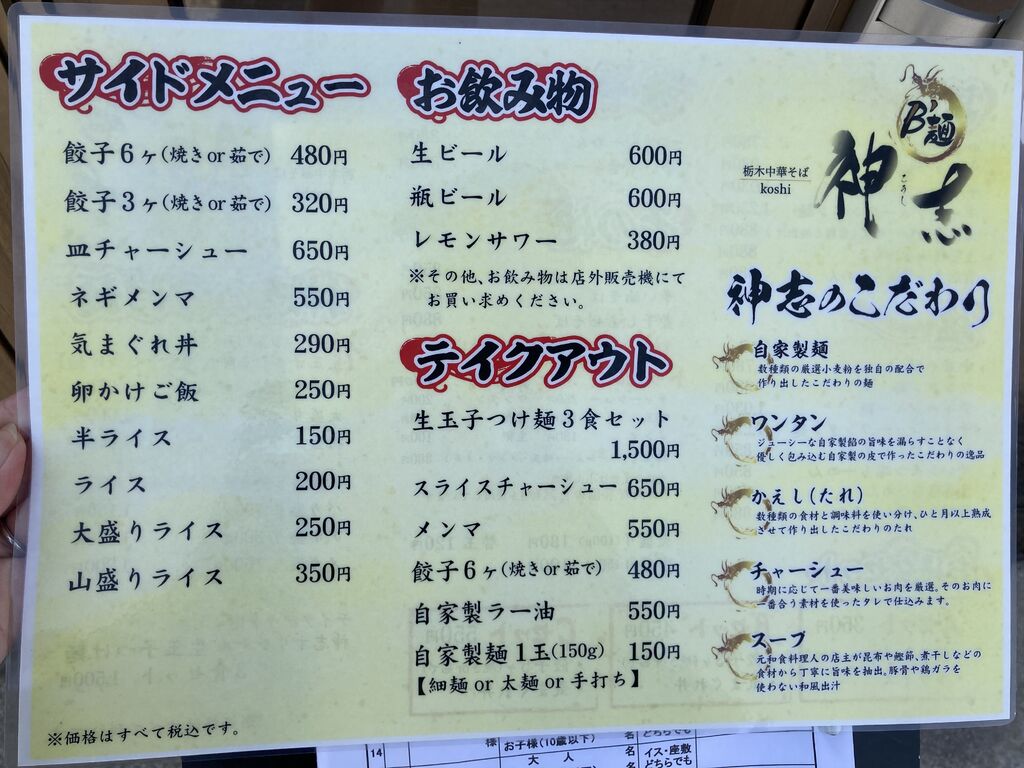 サイドメニュー
餃子6ヶ(焼きor茹で) 480円
餃子3ヶ(焼きor茹で) 320円
皿チャーシュー 650円
ネギメンマ 550円
気まぐれ丼 290円
卵かけご飯 250円
半ライス 150円
ライス 200円
大盛りライス 250円
山盛りライス 350円
※価格はすべて税込です。
お飲み物
生ビール 600円
瓶ビール 600円
レモンサワー 380円
※その他、お飲み物は店外販売機にて
お買い求めください。
テイクアウト
生玉子つけ麺3食セット
1,500円
スライスチャーシュー 650円
メンマ 550円
餃子6ヶ(焼きor茹で) 480円
自家製ラー油 550円
自家製麺1玉(150g) 150円
【細麺or太麺or手打ち】
B麺
栃木中華そば
koshi
神志
こうし
神志のこだわり
自家製麺
数種類の厳選小麦粉を独自の配合で
作り出したこだわりの麺
ワンタン
ジューシーな自家製餡の旨味を漏らすことなく
優しく包み込む自家製の皮で作ったこだわりの逸品
かえし(たれ)
数種類の食材と調味料を使い分け、ひと月以上熟成
させて作り出したこだわりのたれ
チャーシュー
時期に応じて一番美味しいお肉を厳選。そのお肉に
一番合う素材を使ったタレで仕込みます。
スープ
元和食料理人の店主が昆布や鰹節、煮干しなどの
食材から丁寧に旨味を抽出。豚骨や鶏ガラを
使わない和風出汁
14 様 お子様(10歳以下) 名 どちらでも
大人 名 イス・座敷
どちらでも